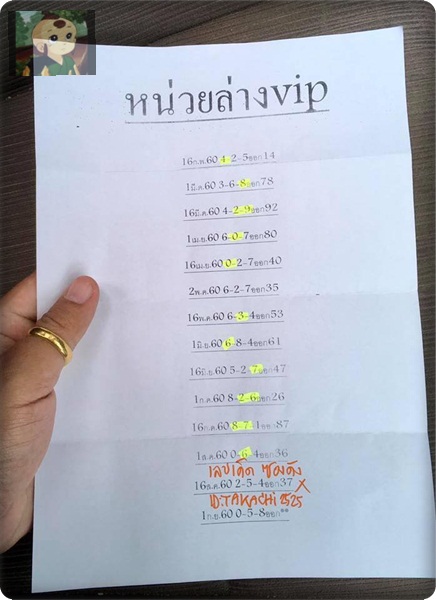 หน่วยล่างvip
16ก.พ.60 4-2-5ออก14
1มี.ค.60 3-6-8ออก78
16มี.ค.60 4-2-9ออก92
1เม.ย.60 6-0-7ออก80
16เม.ย.60 0-2-7ออก40
2พ.ค.60 6-2-7ออก35
16พ.ค.60 6-3-4ออก53
1มิ.ย.60 6-8-4ออก61
16มิ.ย.60 5-2-7ออก47
1ก.ค.60 8-2-6ออก26
16ก.ค.60 8-7-1ออก87
1ส.ค.60 0-6-4ออก36
เลขเด็ด ซองดัง
16ส.ค.60 2-5-4ออก37 X
ID:TAKACHI 2525
1ก.ย.60 0-5-8ออก**